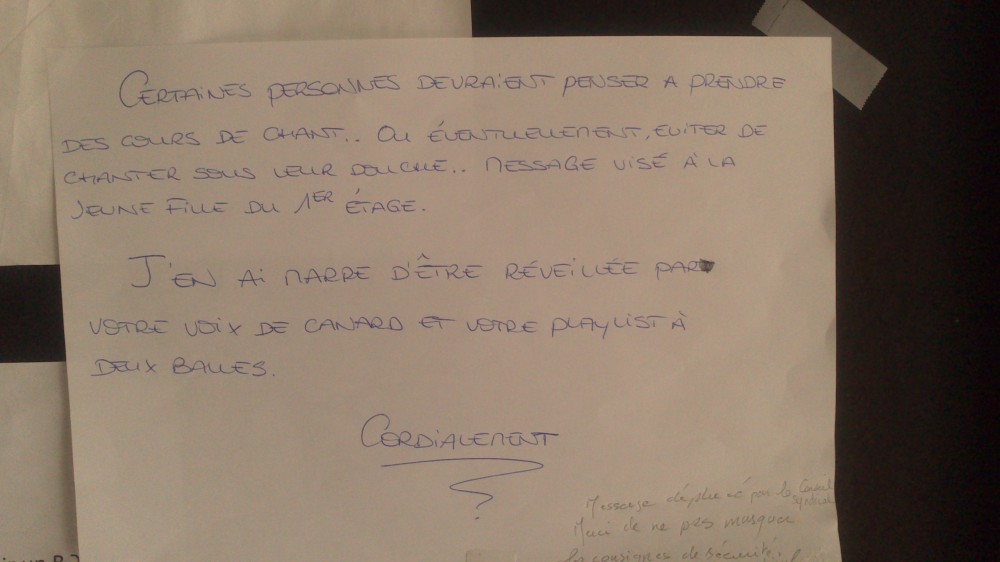 CERTAINES PERSONNES DEVRAIENT PENSER A PRENDRE
DES COURS DE CHANT.. OU ÉVENTUELLEMENT, EVITER DE
CHANTER SOUS LEUR DOUCHE.. MESSAGE VISÉ À LA
JEUNE FILLE DU 1ER ÉTAGE.
J'EN AI MARRE D'ÊTRE RÉVEILLÉE PAR
VOTRE VOIX DE CANARD ET VOTRE PLAYLIST À
DEUX BALLES.
CORDIALEMENT
Message déplacé par le Conseil
Syndical
Merci de ne pas masquer
les consignes de sécurité.